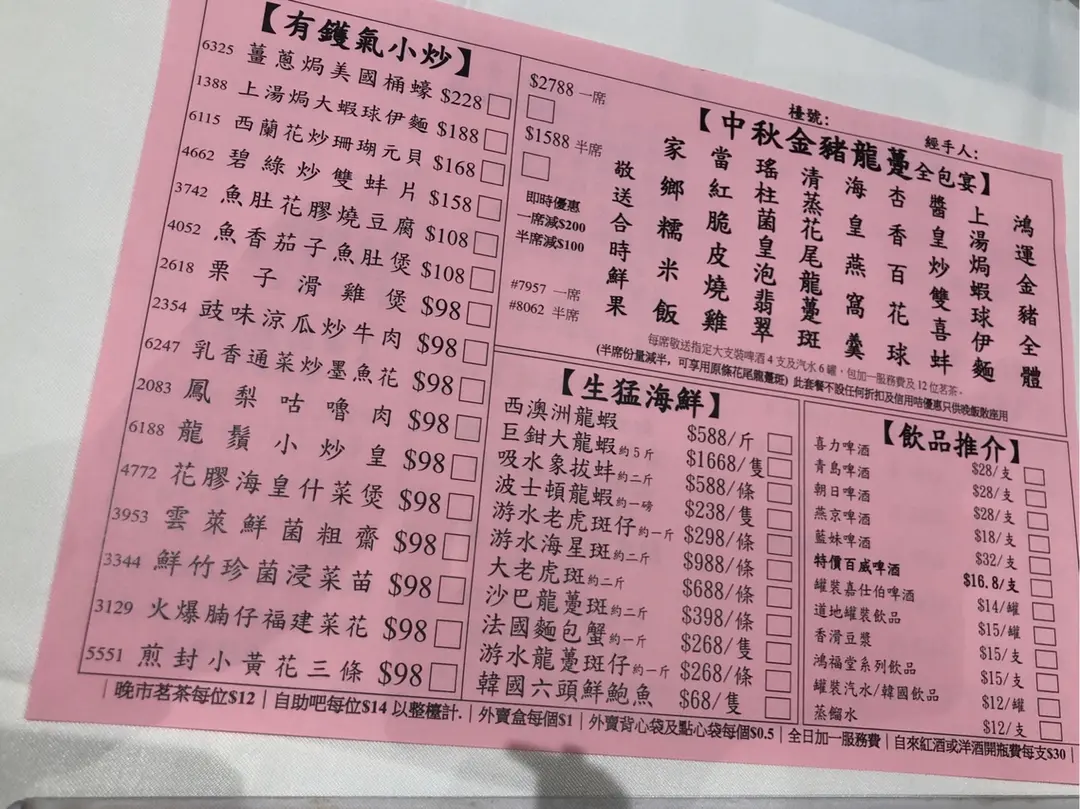 【有鑊氣小炒】
6325 薑蔥焗美國桶蠔 $228
1388 上湯焗大蝦球伊麵 $188
6115 西蘭花炒珊瑚元貝 $168
4662 碧綠炒雙蚌片 $158
3742 魚肚花膠燒豆腐 $108
4052 魚香茄子魚肚煲 $108
2618 栗子滑雞煲 $98
2354 豉味涼瓜炒牛肉 $98
6247 乳香通菜炒墨魚花 $98
2083 鳳梨咕嚕肉 $98
6188 龍鬚小炒皇 $98
4772 花膠海皇什菜煲 $98
3953 雲萊鮮菌粗齋 $98
3344 鮮竹珍菌浸菜苗 $98
3129 火爆腩仔福建菜花 $98
5551 煎封小黃花三條 $98
檯號:
經手人:
【中秋金豬龍躉全包宴】
$2788 一席
$1588 半席
即時優惠
一席減$200
半席減$100
#7957 一席
#8062 半席
鴻運金豬全體
上湯焗蝦球伊麵
醬皇炒雙喜蚌
杏香百花球
海皇燕窩羹
清蒸花尾龍躉斑
瑤柱菌皇泡翡翠
當紅脆皮燒雞
家鄉糯米飯
敬送合時鮮果
每席敬送指定大支裝啤酒4支及汽水6罐，包加一服務費及12位茗茶。
(半席份量減半，可享用原條花尾龍躉斑) 此套餐不設任何折扣及信用咭優惠只供晚飯散座用
【生猛海鮮】
西澳洲龍蝦 $588/斤
巨鉗大龍蝦約5斤 $1668/隻
吸水象拔蚌約二斤 $588/條
波士頓龍蝦約一磅 $238/隻
游水老虎斑仔約一斤 $298/條
游水海星斑約二斤 $988/條
大老虎斑約二斤 $688/條
沙巴龍躉斑約二斤 $398/條
法國麵包蟹約一斤 $268/隻
游水龍躉斑仔約一斤 $268/條
韓國六頭鮮鮑魚 $68/隻
【飲品推介】
喜力啤酒 $28/支
青島啤酒 $28/支
朝日啤酒 $28/支
燕京啤酒 $18/支
藍妹啤酒 $32/支
特價百威啤酒 $16.8/支
罐裝嘉仕伯啤酒 $14/罐
道地罐裝飲品 $15/罐
香滑豆漿 $15/支
鴻福堂系列飲品 $15/支
罐裝汽水/韓國飲品 $12/罐
蒸餾水 $12/支
| 晚市茗茶每位$12 | 自助吧每位$14 以整檯計. | 外賣盒每個$1 | 外賣背心袋及點心袋每個$0.5 | 全日加一服務費 | 自來紅酒或洋酒開瓶費每支$30 |